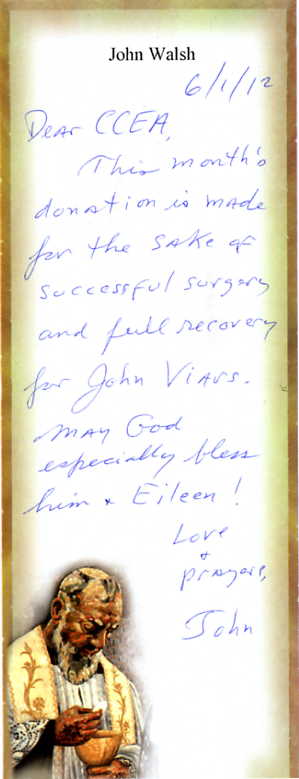 John Walsh
6/1/12
Dear CCEA,
This month's
donation is made
for the sake of
successful surgery
and full recovery
for John Viars.
May God
especially bless
him & Eileen!
Love
&
prayers,
John